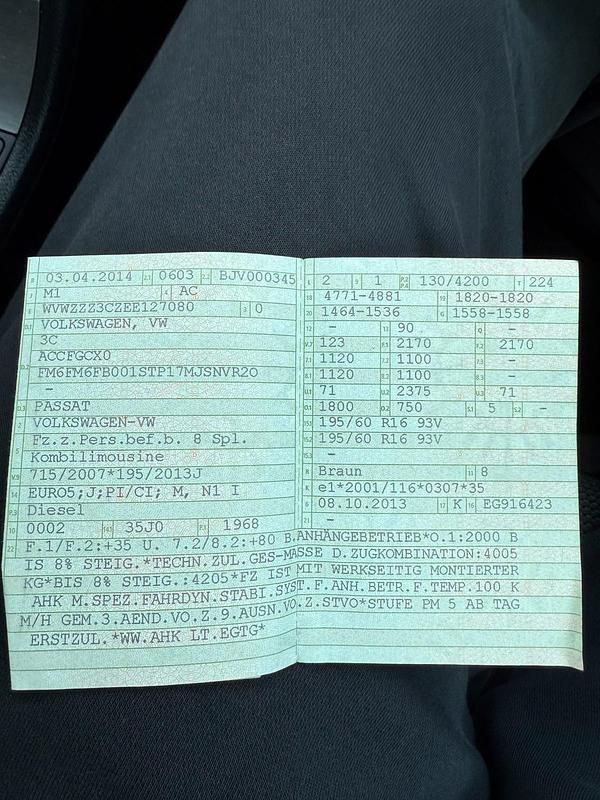 B 03.04.2014 2.1 0603 2.2 BJV000345
J M1 4 AC
E WVWZZZ3CZEE127080 3 0
D.1 VOLKSWAGEN, VW
3C
D.2 ACCFGCX0
FM6FM6FB001STP17MJSNVR2O
-
D.3 PASSAT
2 VOLKSWAGEN-VW
5 Fz.z.Pers.bef.b. 8 Spl.
Kombilimousine
V.9 715/2007*195/2013J
14 EURO5;J;PI/CI; M, N1 I
P.3 Diesel
10 0002 14.1 35J0 P.1 1968
L 2 9 1 P.2 P.4 130/4200 T 224
18 4771-4881 19 1820-1820
20 1464-1536 G 1558-1558
12 - 13 90 Q -
V.7 123 F.1 2170 F.2 2170
7.1 1120 7.2 1100 7.3 -
8.1 1120 8.2 1100 8.3 -
U.1 71 U.2 2375 U.3 71
O.1 1800 O.2 750 S.1 5 S.2 -
15.1 195/60 R16 93V
15.2 195/60 R16 93V
15.3 -
R Braun 11 8
K e1*2001/116*0307*35
6 08.10.2013 17 K 16 EG916423
21 -
22 F.1/F.2:+35 U. 7.2/8.2:+80 B.ANHÄNGEBETRIEB*O.1:2000 B
IS 8% STEIG.*TECHN.ZUL.GES-MASSE D.ZUGKOMBINATION:4005
KG*BIS 8% STEIG.:4205*FZ IST MIT WERKSEITIG MONTIERTER
AHK M.SPEZ.FAHRDYN.STABI.SYST.F.ANH.BETR.F.TEMP.100 K
M/H GEM.3.AEND.VO.Z.9.AUSN.VO.Z.STVO*STUFE PM 5 AB TAG
ERSTZUL.*WW.AHK LT.EGTG*